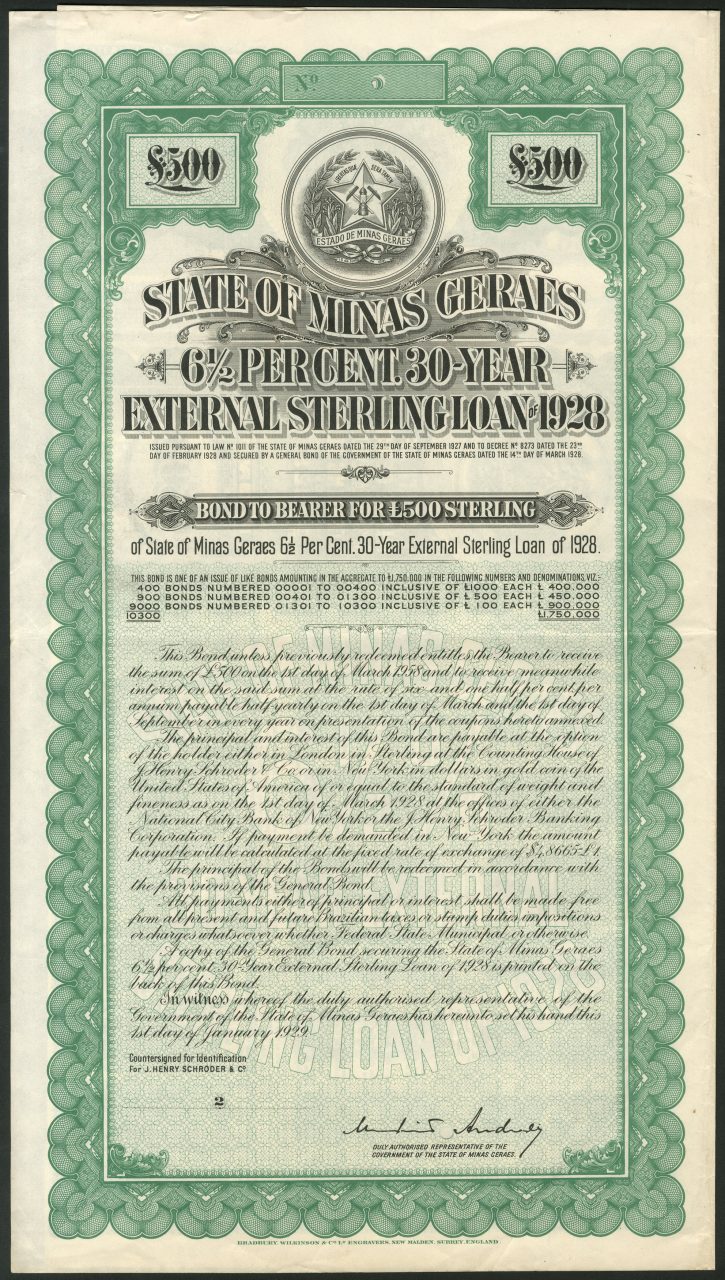 Nº 0
£500
£500
LIBERTAS QUAE SERA TAMEN
ESTADO DE MINAS GERAES
STATE OF MINAS GERAES
6½ PER CENT. 30-YEAR
EXTERNAL STERLING LOAN OF 1928
ISSUED PURSUANT TO LAW Nº 1011 OF THE STATE OF MINAS GERAES DATED THE 29TH DAY OF SEPTEMBER 1927 AND TO DECREE Nº 8273 DATED THE 23RD
DAY OF FEBRUARY 1928 AND SECURED BY A GENERAL BOND OF THE GOVERNMENT OF THE STATE OF MINAS GERAES DATED THE 14TH DAY OF MARCH 1928.
BOND TO BEARER FOR £500 STERLING
of State of Minas Geraes 6½ Per Cent. 30-Year External Sterling Loan of 1928.
THIS BOND IS ONE OF AN ISSUE OF LIKE BONDS AMOUNTING IN THE AGGREGATE TO £1,750,000 IN THE FOLLOWING NUMBERS AND DENOMINATIONS, VIZ.:-
400 BONDS NUMBERED 00001 TO 00400 INCLUSIVE OF £1000 EACH £ 400.000
900 BONDS NUMBERED 00401 TO 01300 INCLUSIVE OF £ 500 EACH £ 450.000
9000 BONDS NUMBERED 01301 TO 10300 INCLUSIVE OF £ 100 EACH £ 900.000
10300 £1,750,000
This Bond unless previously redeemed entitles the Bearer to receive
the sum of £500 on the 1st day of March 1958 and to receive meanwhile
interest on the said sum at the rate of six and one half per cent. per
annum payable half yearly on the 1st day of March and the 1st day of
September in every year on presentation of the coupons hereto annexed.
The principal and interest of this Bond are payable at the option
of the holder either in London in Sterling at the Counting House of
J. Henry Schroder & Co or in New York in dollars in gold coin of the
United States of America of or equal to the standard of weight and
fineness as on the 1st day of March 1928 at the offices of either the
National City Bank of New York or the J. Henry Schroder Banking
Corporation. If payment be demanded in New York the amount
payable will be calculated at the fixed rate of exchange of $4,8665-£1.
The principal of the Bonds will be redeemed in accordance with
the provisions of the General Bond.
All payments either of principal or interest shall be made free
from all present and future Brazilian taxes or stamp duties impositions
or charges whatsoever whether Federal State Municipal or otherwise.
A copy of the General Bond securing the State of Minas Geraes
6½ per cent. 30-Year External Sterling Loan of 1928 is printed on the
back of this Bond.
In witness whereof the duly authorised representative of the
Government of the State of Minas Geraes has hereunto set his hand this
1st day of January 1929.
Countersigned for Identification
For J. HENRY SCHRODER & Cº
2
DULY AUTHORISED REPRESENTATIVE OF THE
GOVERNMENT OF THE STATE OF MINAS GERAES.
BRADBURY, WILKINSON & Cº Lᴰ ENGRAVERS, NEW MALDEN, SURREY, ENGLAND